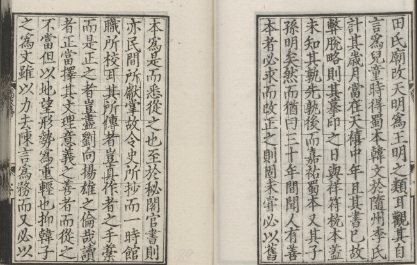 田氏廟改天明為王明之類耳觀其自
言為兒童時得蜀本韓文於隨州李氏
計其歲月當在天禧中年且其書已故
弊脫略則其摹印之日與祥符杭本蓋
未知其孰先孰後而嘉祐蜀本又其子
孫明矣然而猶曰三十年間聞人有善
本者必求而改正之則固未嘗必以舊
本為是而悉從之也至於秘閣官書則
亦民間所獻掌故令史所抄而一時館
職所校耳其所傳者豈真作者之手藁
而是正之者豈盡劉向揚雄之倫哉讀
者正當擇其文理意義之善者而從之
不當但以地望形勢為重輕也抑韓子
之為文雖以力去陳言為務而又必以